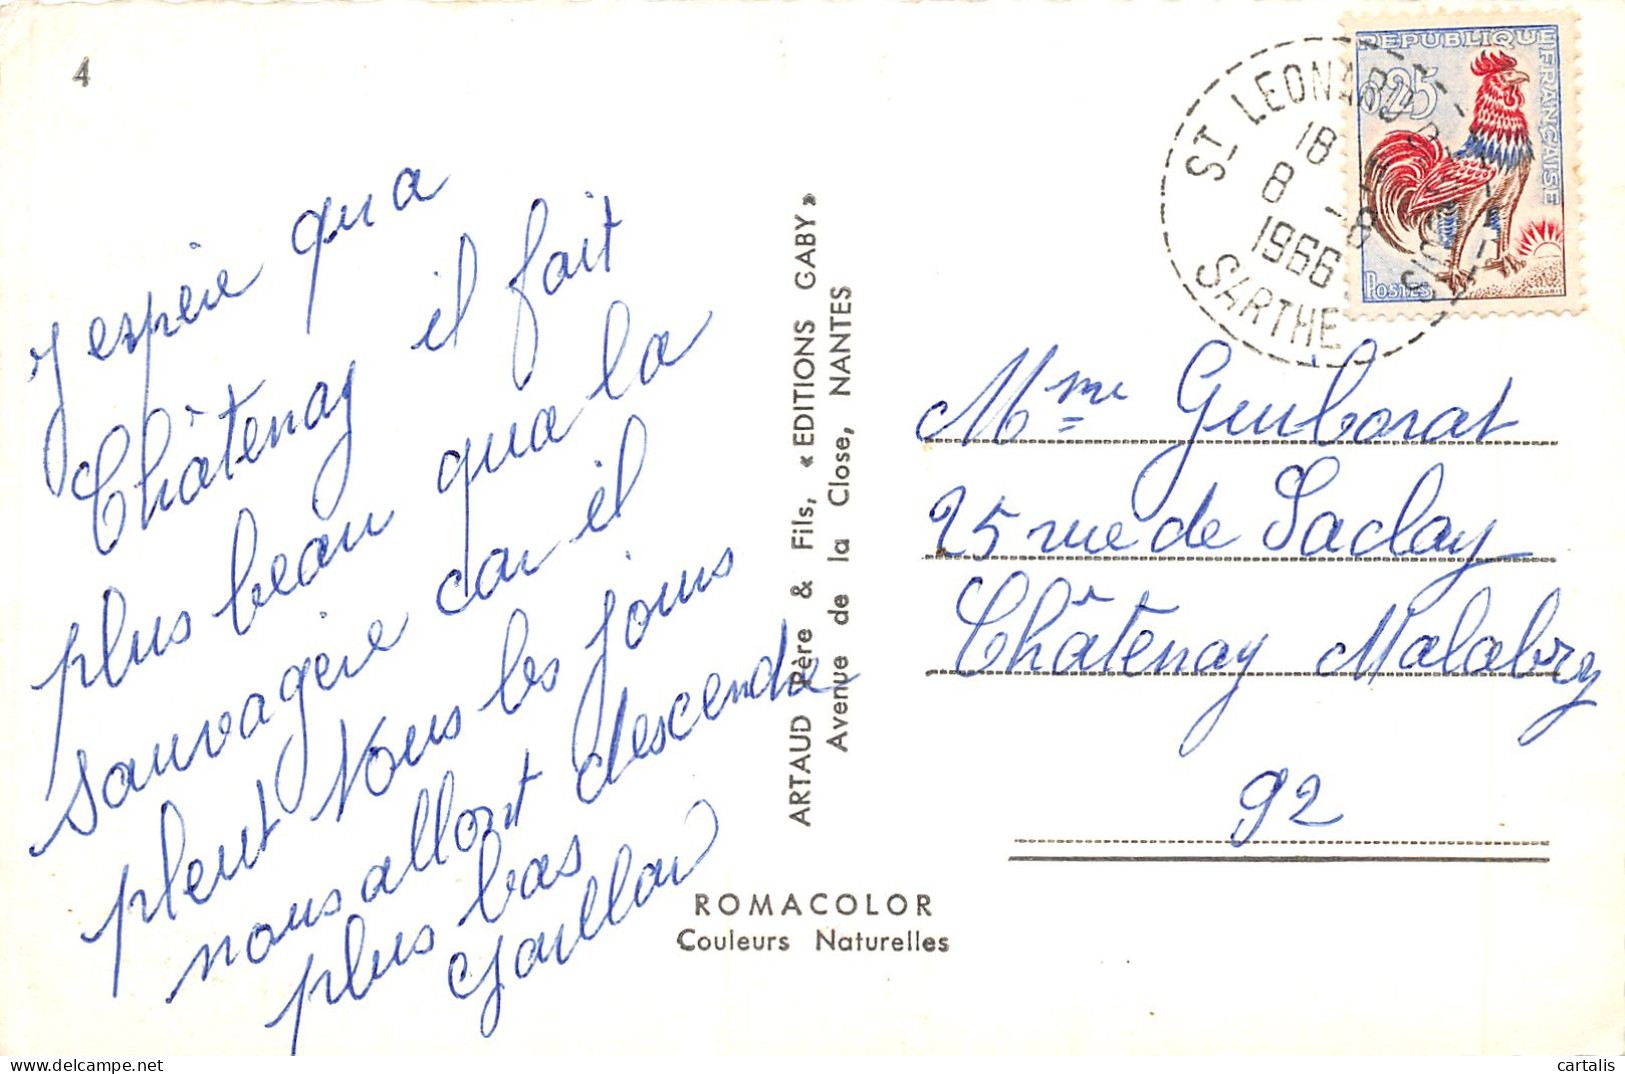 4
j espère qu a
Châtenay il fait
plus beau qua la
sauvagère car il
pleut Nous les jours
nous allont descendre
plus bas
Gaillar
ARTAUD Père & Fils, « EDITIONS GABY »
Avenue de la Close, NANTES
ROMACOLOR
Couleurs Naturelles
REPUBLIQUE FRANÇAISE
0,25
POSTES
ST LEONARD D
18 H
8 - 8
1966
SARTHE
Mme Guiborat
25 rue de Saclay
Châtenay Malabry
92
www.delcampe.net
cartalis